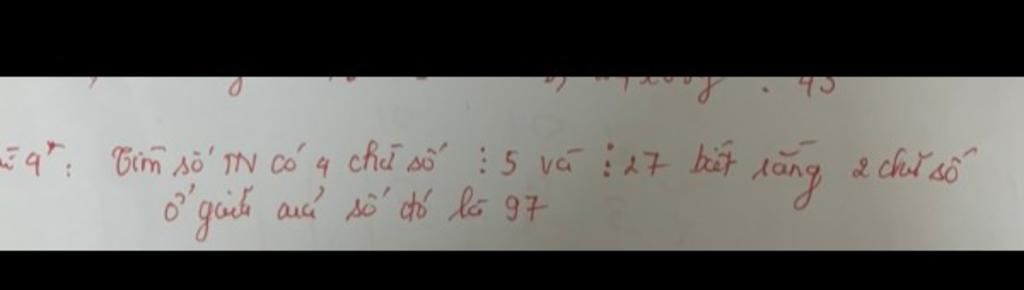 45
4*: Tìm số TN có 4 chữ số ⋮ 5 và ⋮ 27 biết rằng 2 chữ số
ở giữa của số đó là 97